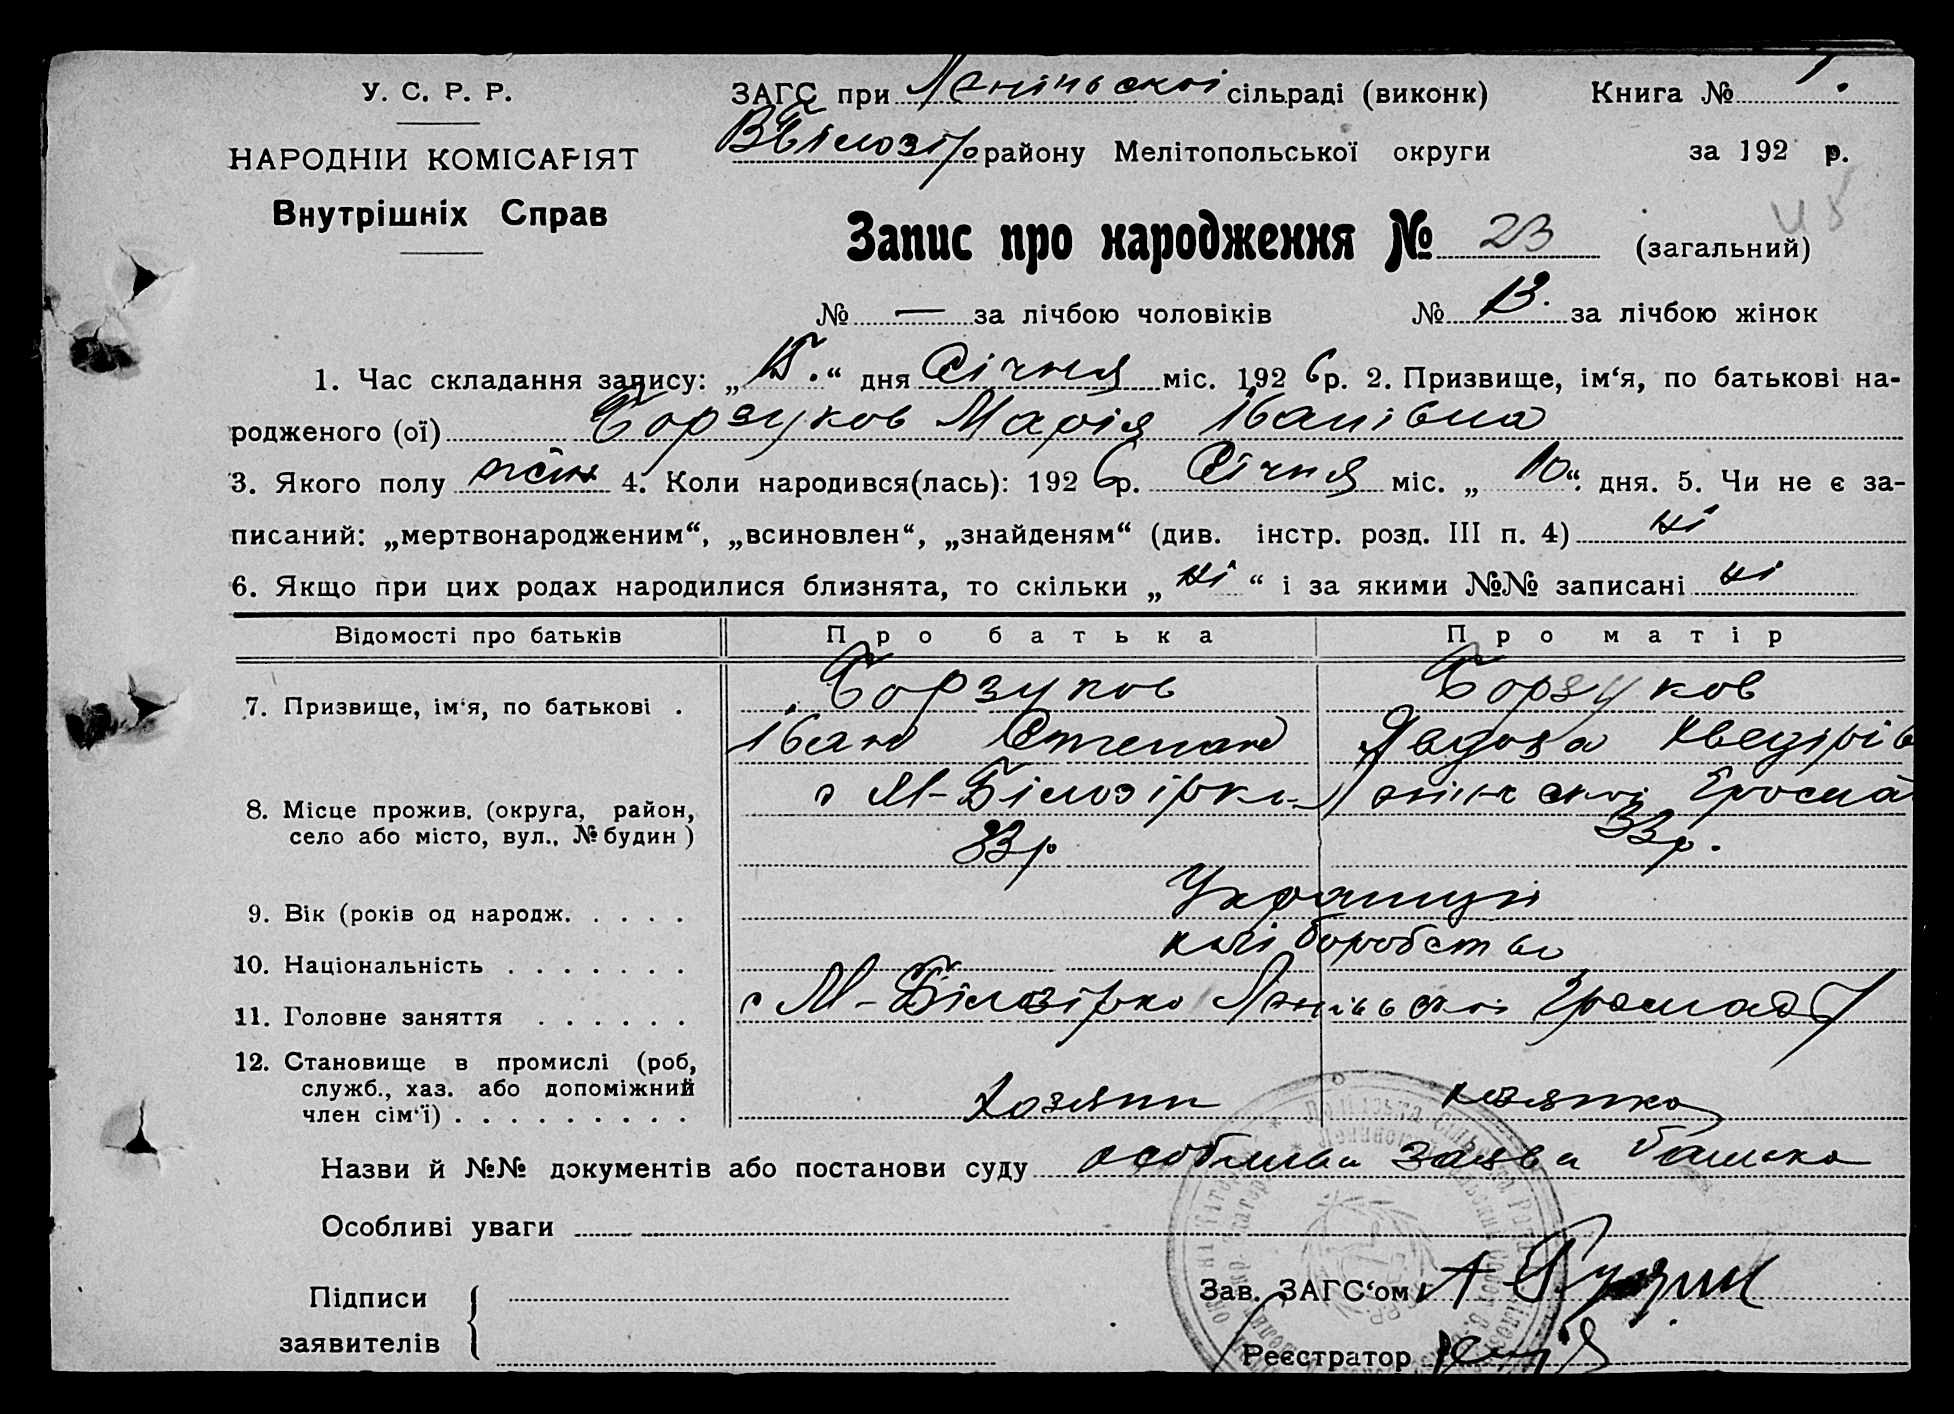 У. С. Р. Р.
НАРОДНІЙ КОМІСАРІЯТ
Внутрішніх Справ
ЗАГС при Леніньскої сільраді (виконк) Книга № 1.
ВБілозір району Мелітопольської округи за 192 р.
Запис про народження № 23 (загальний)
№ — за лічбою чоловіків № 13. за лічбою жінок
1. Час складання запису: „15.“ дня Січня міс. 1926 р. 2. Призвище, ім‘я, по батькові на-
родженого (ої) Борзуков Марія Іванівна
3. Якого полу жін 4. Коли народився(лась): 1926 р. Січня міс. „10“. дня. 5. Чи не є за-
писаний: „мертвонародженим“, „всиновлен“, „знайденям“ (див. інстр. розд. III п. 4) ні
6. Якщо при цих родах народилися близнята, то скільки „ні“ і за якими №№ записані ні
Відомості про батьків Про батька Про матір
7. Призвище, ім‘я, по батькові . Борзуков Борзуков
Іван Степан Явдоха
8. Місце прожив. (округа, район, с М-Білозірка Леніньскої Громад
село або місто, вул., № будин) 33р 33р.
9. Вік (років од народж. . . . . Українці
10. Національність . . . . . . . хліборобство
11. Головне заняття . . . . . . с М-Білозірка Леніньскої Громади
12. Становище в промислі (роб,
служб., хаз. або допоміжний
член сім‘ї) . . . . . . . . . . Хозяїн хозяйка
Назви й №№ документів або постанови суду особлива заява батька
Особливі уваги
Підписи
заявителів
Зав. ЗАГС‘ом
Реєстратор